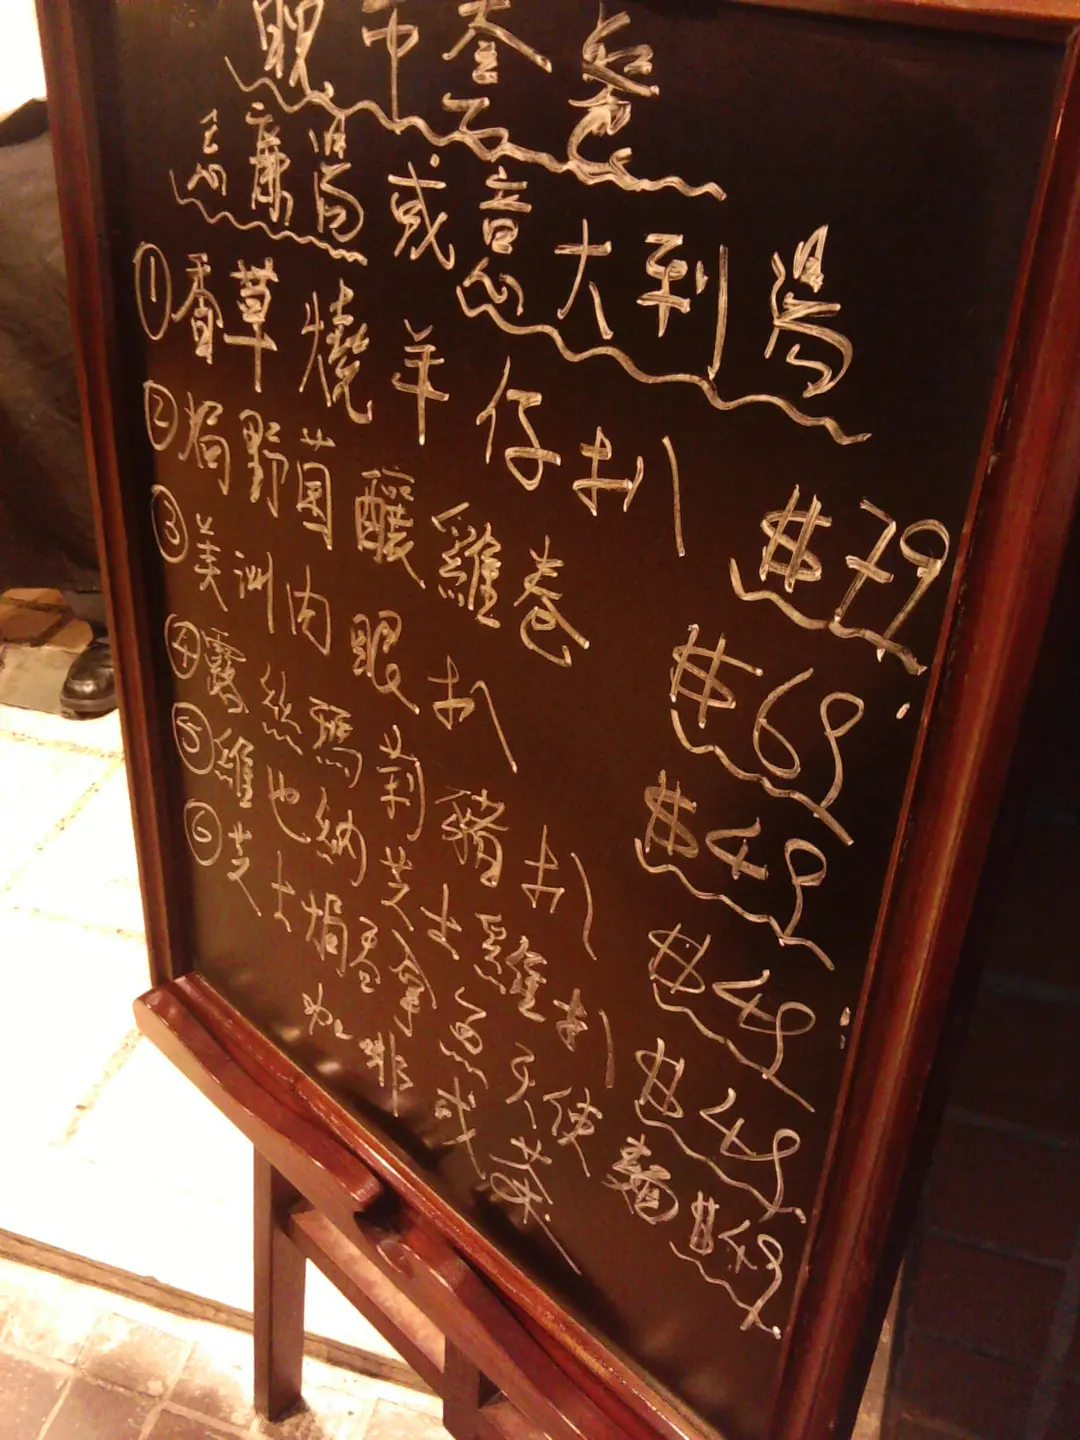 午套餐
忌廉湯或意大利湯
①香草燒羊仔扒 $79
②焗野菌釀雞卷 $69
③美洲肉眼扒 $49
④露絲瑪莉豬扒 $49
⑤維也納芝士雞扒 $49
⑥芝士焗吞拿魚天使麵 $49
咖啡或茶